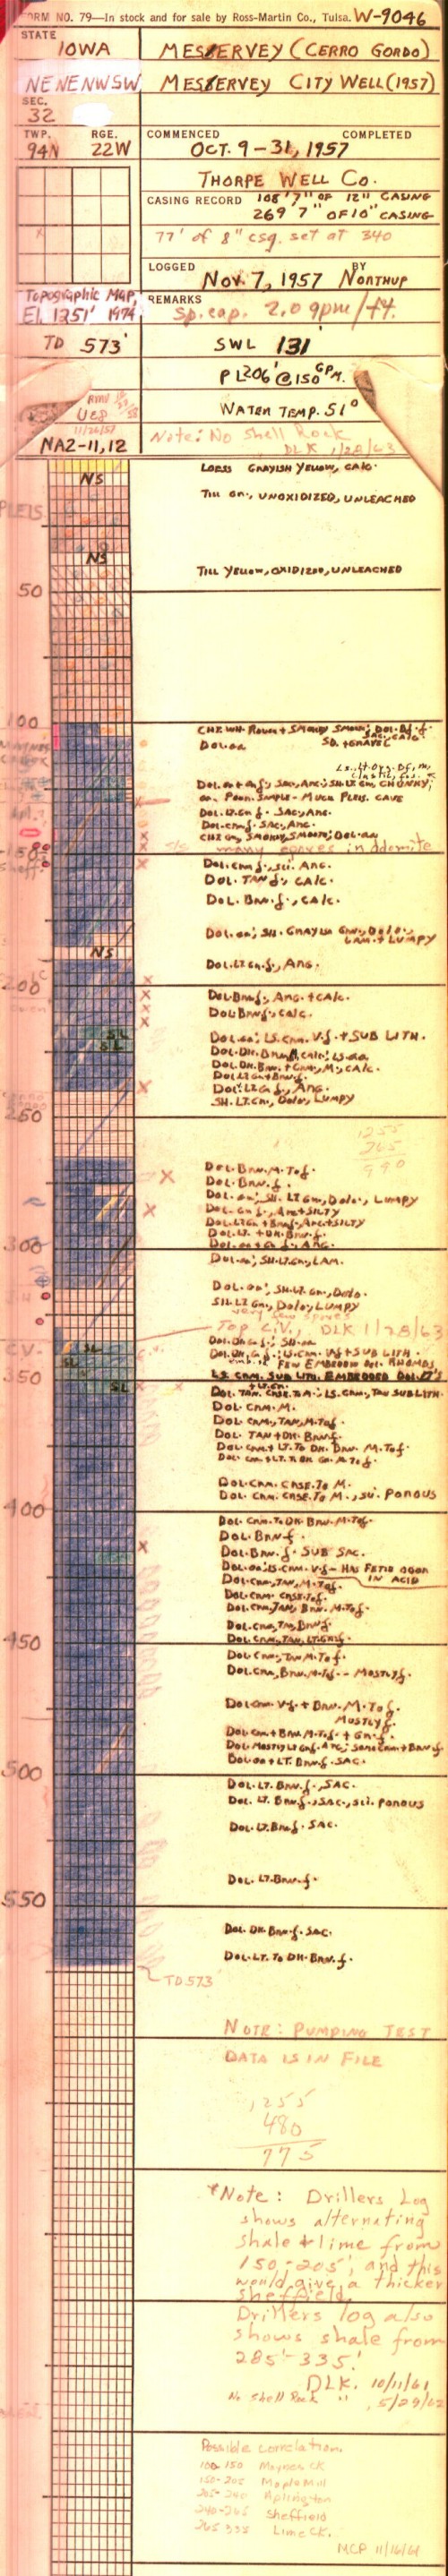 FORM NO. 79—In stock and for sale by Ross-Martin Co., Tulsa. W-9046
STATE
IOWA
MESSERVEY (CERRO GORDO)
NE NE NW SW
MESSERVEY CITY WELL (1957)
SEC.
32
TWP. RGE.
94N 22W
COMMENCED COMPLETED
OCT. 9-31, 1957
THORPE WELL CO.
CASING RECORD 108'7" OF 12" CASING
269'7" OF 10" CASING
77' of 8" csg. set at 340
LOGGED BY
NOV. 7, 1957 NORTHUP
Topographic Map,
El. 1251' 1974
REMARKS
Sp. cap. 2.0 gpm/ft.
TD 573'
SWL 131'
PL206' @ 150 GPM.
11/26/57
WATER TEMP. 51°
NA2-11,12
Note: No Shell Rock
DLK 1/28/63
LOESS GRAYISH YELLOW, CALC.
NS
TILL GR., UNOXIDIZED, UNLEACHED
PLEIS.
NS
TILL YELLOW, OXIDIZED, UNLEACHED
50
100
CHT. WH. ROUGH + SMOKY SMOOTH; DOL. BF. f.
SAC. CALC.
DOL. aa SD. + GRAVEL
DOL. aa + Gn f., SAC., ARG.; SH. LT. GN, CHUNKY;
aa POOR SAMPLE - MUCH PLEIS. CAVE
DOL. LT. GN f. SAC., ARG.
DOL. CRM f. SAC., ARG.
CHT. GN, SMOKY, SMOOTH; DOL. aa
many spores in dolomite
150
DOL. CRM f., SLI. ARG.
DOL. TAN f., CALC.
DOL. BRN. f., CALC.
DOL. aa; SH. GRAYISH GRN., DOLO.,
LAM. + LUMPY
NS
DOL. LT. GN. f., ARG.
200
DOL. BRN f., ARG. + CALC.
DOL. BRN f., CALC.
SL
DOL. aa; LS. CRM. V. f. + SUB LITH.
SL
DOL. DK. BRN f., CALC.; LS. aa
DOL. DK. BRN. + CRM., M., CALC.
DOL. LT. GN + BRN f.
DOL. LT. GN f., ARG.
SH. LT. GN., DOLO., LUMPY
250
1255
265
990
DOL. BRN. M. TO f.
DOL. BRN. f.
DOL. aa; SH. LT GRN., DOLO., LUMPY
DOL. GN f., ARG + SILTY
DOL. LT GN + BRN f., ARG. + SILTY
DOL. LT. + DK. BRN. f.
300
DOL. aa + GN f., ARG.
DOL. aa; SH. LT. GN., LAM.
DOL. aa; SH. LT. GN., DOLO.
SH. LT GRN., DOLO., LUMPY
very few spores
Top C.V. DLK 1/28/63
C.V.
SL
DOL. DK. G. f.; SH. aa
SL
DOL. DK. G. f.; LS. CRM. Vf + SUB LITH.
FEW EMBEDDED DOL. RHOMBS
350
LS. CRM. SUB LITH. EMBEDDED DOL. X'S
SL
+ LT. GN.
DOL. TAN. CRSE. TO M.; LS. CRM., TAN SUB LITH.
DOL. CRM. M.
DOL. CRM., TAN, M. TO f.
DOL. TAN + DK. BRN f.
DOL. CRM + LT. TO DK. BRN. M. TO f.
DOL. CRM + LT. TO DK GN. M. TO f.
DOL. CRM. CRSE. TO M.
DOL. CRM. CRSE. TO M., SLI. POROUS
400
DOL. CRM. TO DK. BRN. M. TO f.
DOL. BRN f.
DOL. BRN. f. SUB SAC.
DOL. aa; LS. CRM. V f — HAS FETID ODOR
IN ACID
DOL. CRM., TAN, M. TO f.
DOL. CRM. CRSE. TO f.
DOL. CRM., TAN, BRN. M. TO f.
DOL. CRM., TAN, BRN f.
450
DOL. CRM., TAN, LT. GN f.
DOL. CRM., TAN M. TO f.
DOL. CRM., BRN. M. TO f. — MOSTLY f.
DOL. CRM. V f. + BRN. M. TO f.
MOSTLY f.
DOL. CRM + BRN. M. TO f. + GN. f.
DOL. MOSTLY LT GN f. ARG.; SOME CRM + BRN f.
DOL. aa + LT. BRN. f. SAC.
500
DOL. LT. BRN. f., SAC.
DOL. LT. BRN f., SAC., SLI. POROUS
DOL. LT. BRN f. SAC.
550
DOL. LT. BRN. f.
DOL. DK. BRN. f. SAC.
DOL. LT. TO DK. BRN. f.
TD 573'
NOTE: PUMPING TEST
DATA IS IN FILE
1255
480
775
*Note: Drillers Log
shows alternating
shale + lime from
150-205', and this
would give a thicker
Sheffield.
Drillers log also
shows shale from
285'-335'.
DLK. 10/11/61
No Shell Rock " , 5/29/62
Possible correlation.
100-150 Maynes Ck
150-205 Maple Mill
205-240 Aplington
240-265 Sheffield
265 335 Lime Ck.
MCP 11/16/61